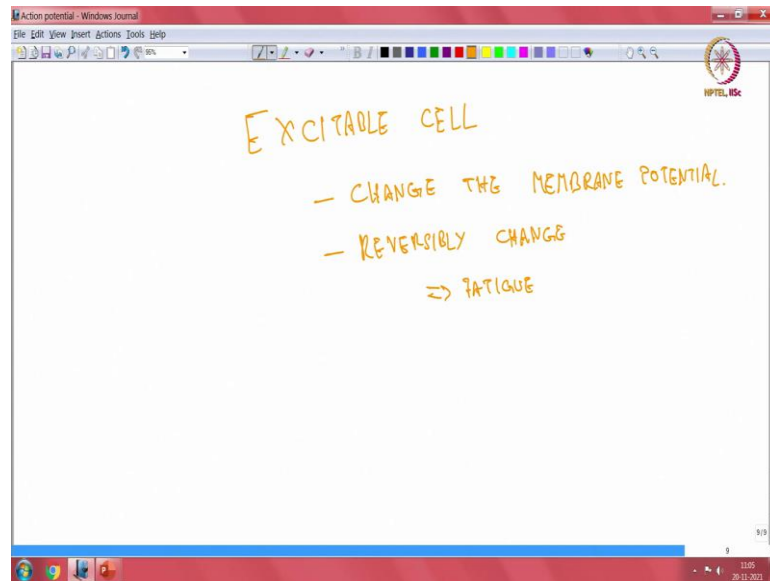 Action potential - Windows Journal
File Edit View Insert Actions Tools Help
95%
B I
NPTEL, IISc
EXCITABLE CELL
— CHANGE THE MEMBRANE POTENTIAL.
— REVERSIBLY CHANGE
=> FATIGUE
9/9
9
11:05
20-11-2021